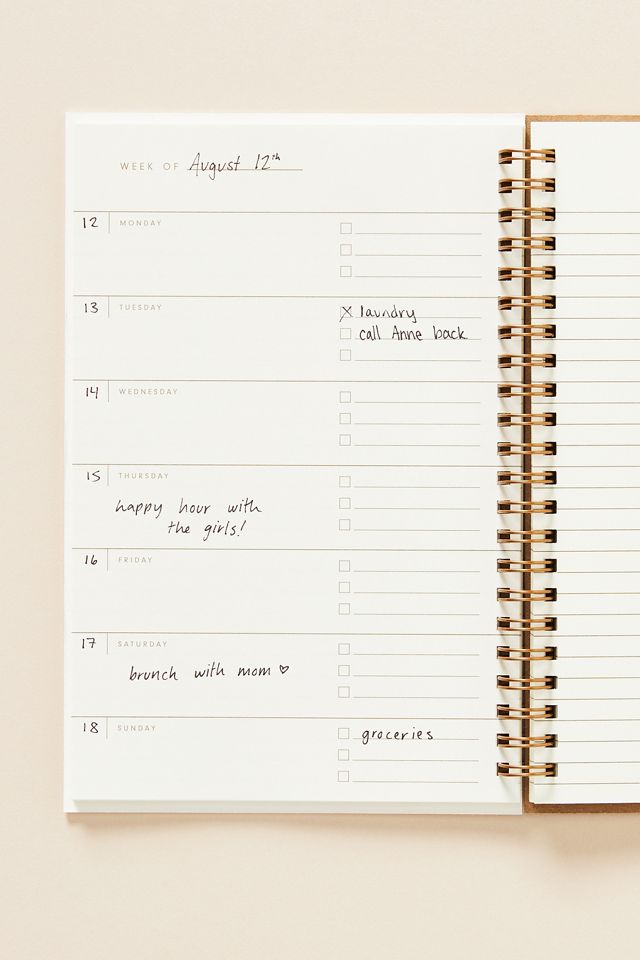 WEEK OF August 12th
12 MONDAY
13 TUESDAY
laundry
call Anne back
14 WEDNESDAY
15 THURSDAY
happy hour with
the girls!
16 FRIDAY
17 SATURDAY
brunch with mom ♡
18 SUNDAY
groceries